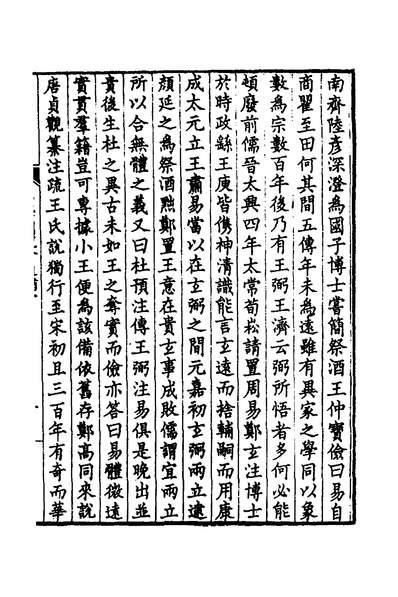 南齊陸彥深澄為國子博士嘗簡祭酒王仲寶儉曰易自
商瞿至田何其間五傳年未為遠雖有異家之學同以象
數為宗數百年後乃有王弼王濟云弼所悟者多何必能
頓廢前儒晉太興四年太常荀崧請置周易鄭玄注博士
於時政繇王庾皆儁神清識能言玄遠而捨輔嗣而用康
成太元立王肅易當以在玄弼之間元嘉初玄弼兩立逮
顏延之為祭酒黜鄭置王意在貴玄事成敗儒謂宜兩立
所以合無體之義又曰杜預注傳王弼注易俱是晚出並
貴後生杜之異古未如王之奪實而儉亦答曰易體微遠
實貫羣籍豈可專據小王便為該備依舊存鄭高同來說
唐貞觀纂注疏王氏說獨行至宋初且三百年有奇而華